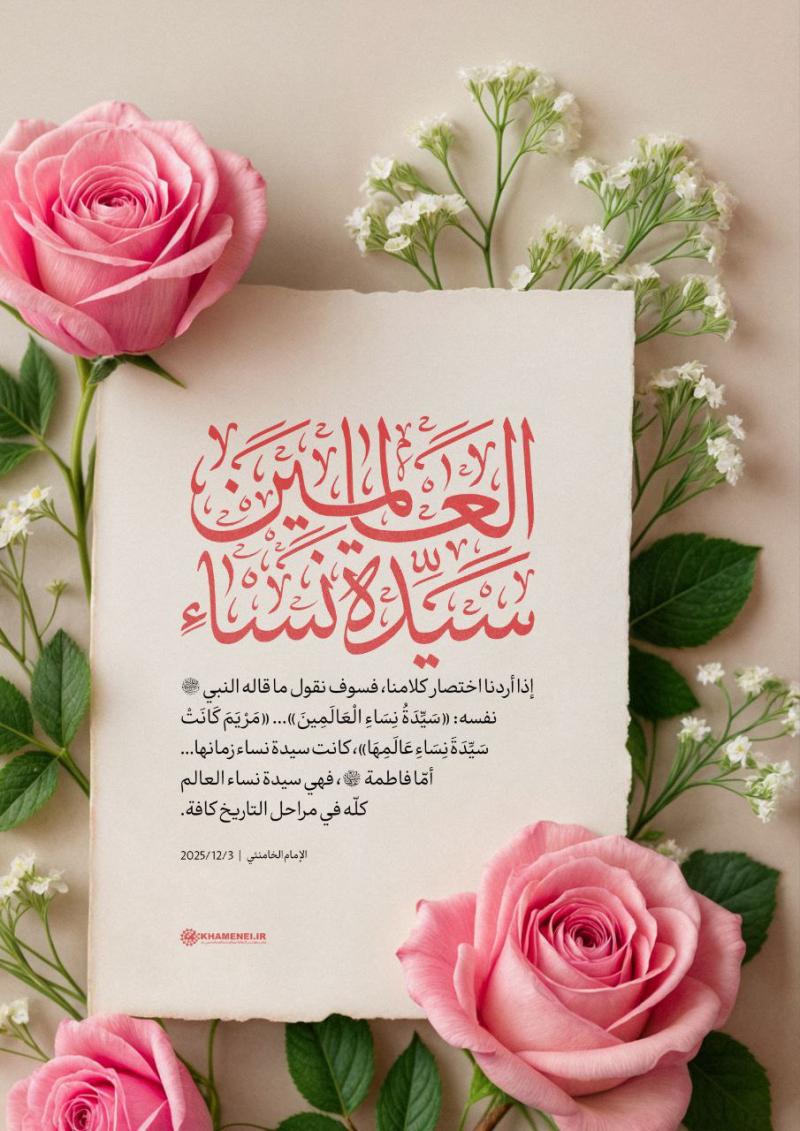 سَيِّدَة نِسَاءِ
العَالَمِينَ
إذا أردنا اختصار كلامنا، فسوف نقول ما قاله النبي ﷺ
نفسه: «سَيِّدَةُ نِسَاءِ الْعَالَمِينَ»... «مَرْيَمَ كَانَتْ
سَيِّدَةَ نِسَاءِ عَالَمِهَا»، كانت سيدة نساء زمانها...
أمّا فاطمة، فهي سيدة نساء العالم
كلّه في مراحل التاريخ كافة.
الإمام الخامنئي | 2025/12/3
KHAMENEI.IR